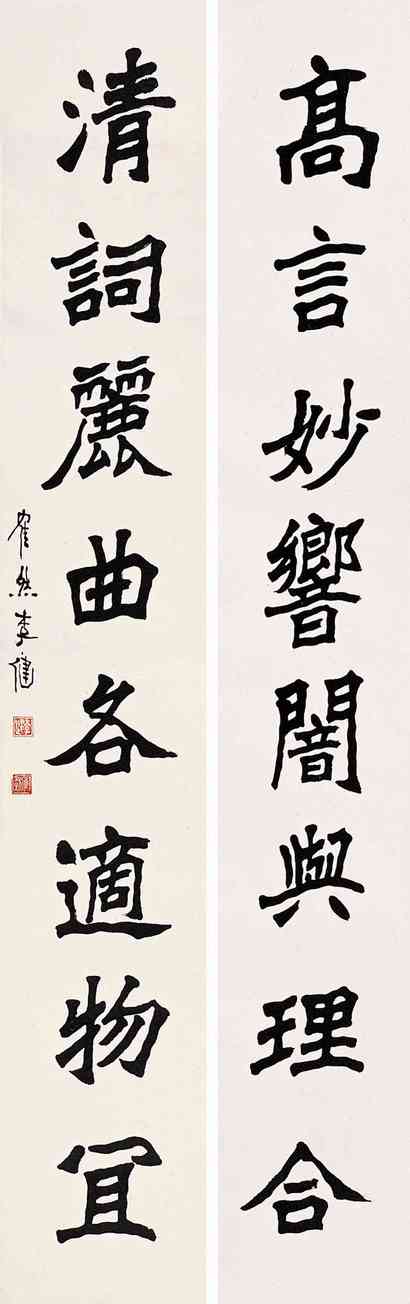 高言妙響闇與理合
清詞麗曲各適物冝
寉然李健